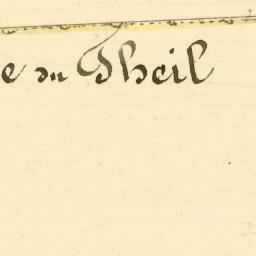 e du Theil